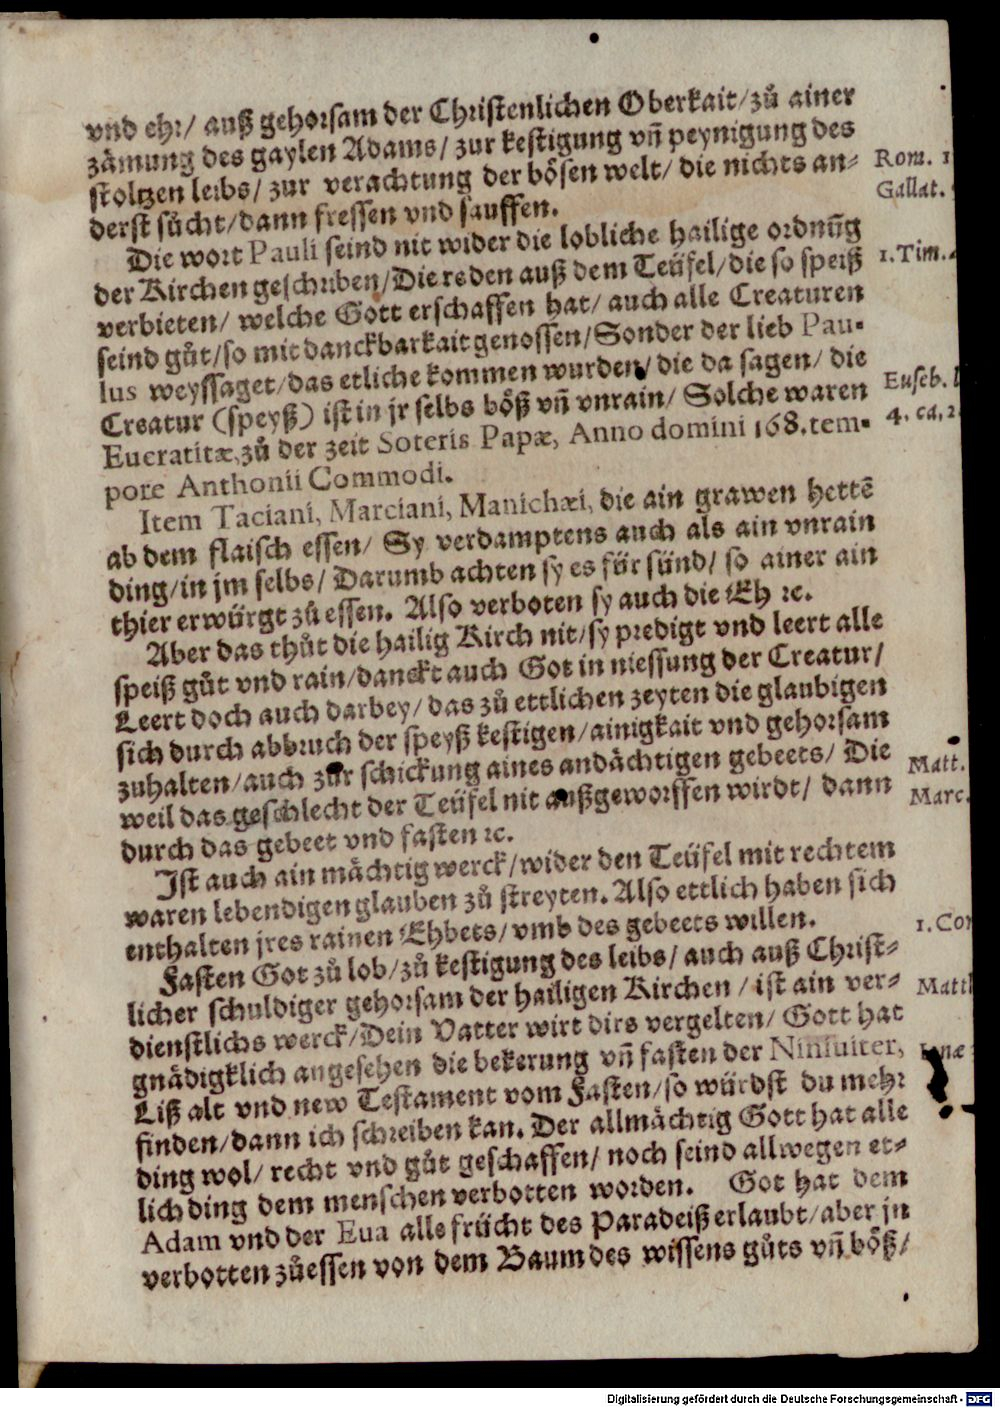 vnd ehr/ auß gehorsam der Christenlichen Oberkait/zů ainer
zämung des gaylen Adams/ zur kestigung vñ peynigung des
stoltzen leibs/ zur verachtung der bösen welt/ die nichts an-
derst sůcht/dann fressen vnd sauffen.
Rom. 1
Gallat. 5
Die wort Pauli seind nit wider die lobliche hailige ordnũg
der Kirchen geschriben/Die reden auß dem Teüfel/die so speiß
verbieten/ welche Gott erschaffen hat/ auch alle Creaturen
seind gůt/so mit danckbarkait genossen/Sonder der lieb Pau-
lus weyssaget/das etliche kommen wurden/ die da sagen/ die
Creatur (speyß) ist in jr selbs böß vñ vnrain/ Solche waren
Eucratitæ,zů der zeit Soteris Papæ, Anno domini 168.tem-
pore Anthonii Commodi.
1.Tim.4
Euseb. l
4. ca, 2
Item Taciani, Marciani, Manichæi, die ain grawen hettẽ
ab dem flaisch essen/ Sy verdamptens auch als ain vnrain
ding/in jm selbs/ Darumb achten sy es für sünd/ so ainer ain
thier erwürgt zů essen. Also verboten sy auch die Eh ꝛc.
Aber das thůt die hailig Kirch nit/sy predigt vnd leert alle
speiß gůt vnd rain/danckt auch Got in niessung der Creatur/
Leert doch auch darbey/das zů ettlichen zeyten die glaubigen
sich durch abbruch der speyß kestigen/ainigkait vnd gehorsam
zuhalten/auch zur schickung aines andächtigen gebeets/ Die
weil das geschlecht der Teüfel nit außgeworffen wirdt/ dann
durch das gebeet vnd fasten ꝛc.
Matt.
Marc.
Ist auch ain mächtig werck/wider den Teüfel mit rechtem
waren lebendigen glauben zů streyten. Also ettlich haben sich
enthalten jres rainen Ehbets/ vmb des gebeets willen.
1.Cor
Fasten Got zů lob/zů kestigung des leibs/ auch auß Christ-
licher schuldiger gehorsam der hailigen Kirchen / ist ain ver-
dienstlichs werck/Dein Vatter wirt dirs vergelten/ Gott hat
gnädigklich angesehen die bekerung vñ fasten der Niniuiter,
Liß alt vnd new Testament vom Fasten/so würdst du mehr
finden/dann ich schreiben kan. Der allmächtig Gott hat alle
ding wol/ recht vnd gůt geschaffen/ noch seind allwegen et-
lich ding dem menschen verbotten worden. Got hat dem
Adam vnd der Eua alle frücht des Paradeiß erlaubt/aber jn
verbotten zůessen von dem Baum des wissens gůts vñ böß/
Matth
Digitalisierung gefördert durch die Deutsche Forschungsgemeinschaft - DFG